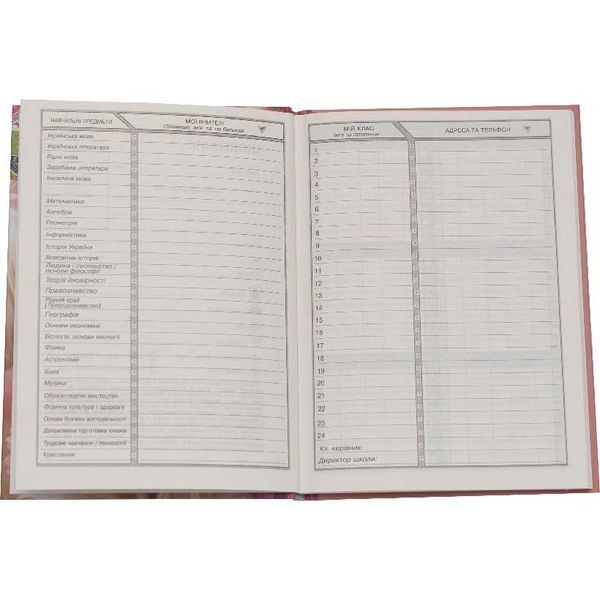 НАВЧАЛЬНІ ПРЕДМЕТИ
МОЇ ВЧИТЕЛІ
Прізвище, ім'я та по батькові
Українська мова
Українська література
Рідна мова
Зарубіжна література
Іноземна мова
Математика
Алгебра
Геометрія
Інформатика
Історія України
Всесвітня історія
Людина і суспільство /
основи філософії
Теорія ймовірності
Правознавство
Рідний край
(Природознавство)
Географія
Основи економіки
Біологія, основи екології
Фізика
Астрономія
Хімія
Музика
Образотворче мистецтво
Фізична культура і здоров'я
Основи безпеки життєдіяльності
Допризивна підготовка юнаків
Трудове навчання / технології
Креслення
МІЙ КЛАС
Ім'я та прізвище
АДРЕСА ТА ТЕЛЕФОН
1
2
3
4
5
6
7
8
9
10
11
12
13
14
15
16
17
18
19
20
21
22
23
24
Кл. керівник:
Директор школи: